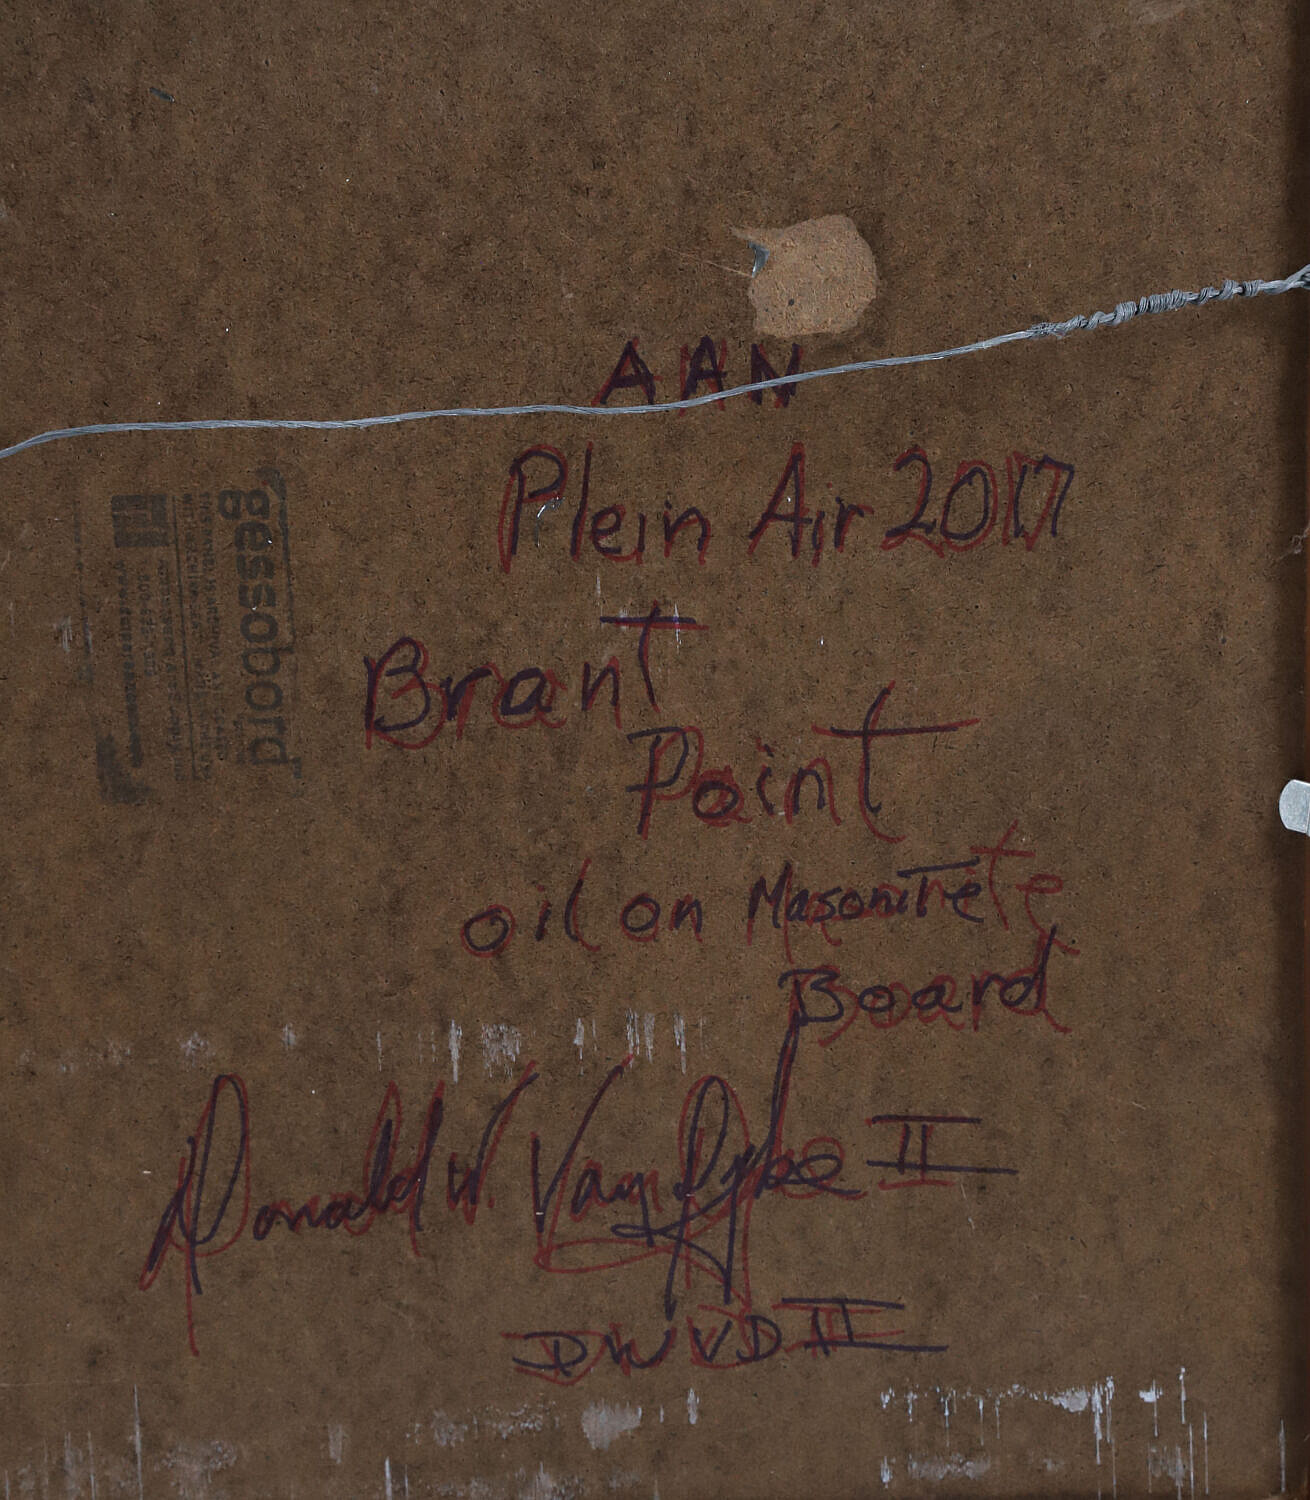 AAN
Plein Air 2017
Brant
Point
oil on Masonite
Board
Donald W. Van Dyke II
DWVD II
gessobord